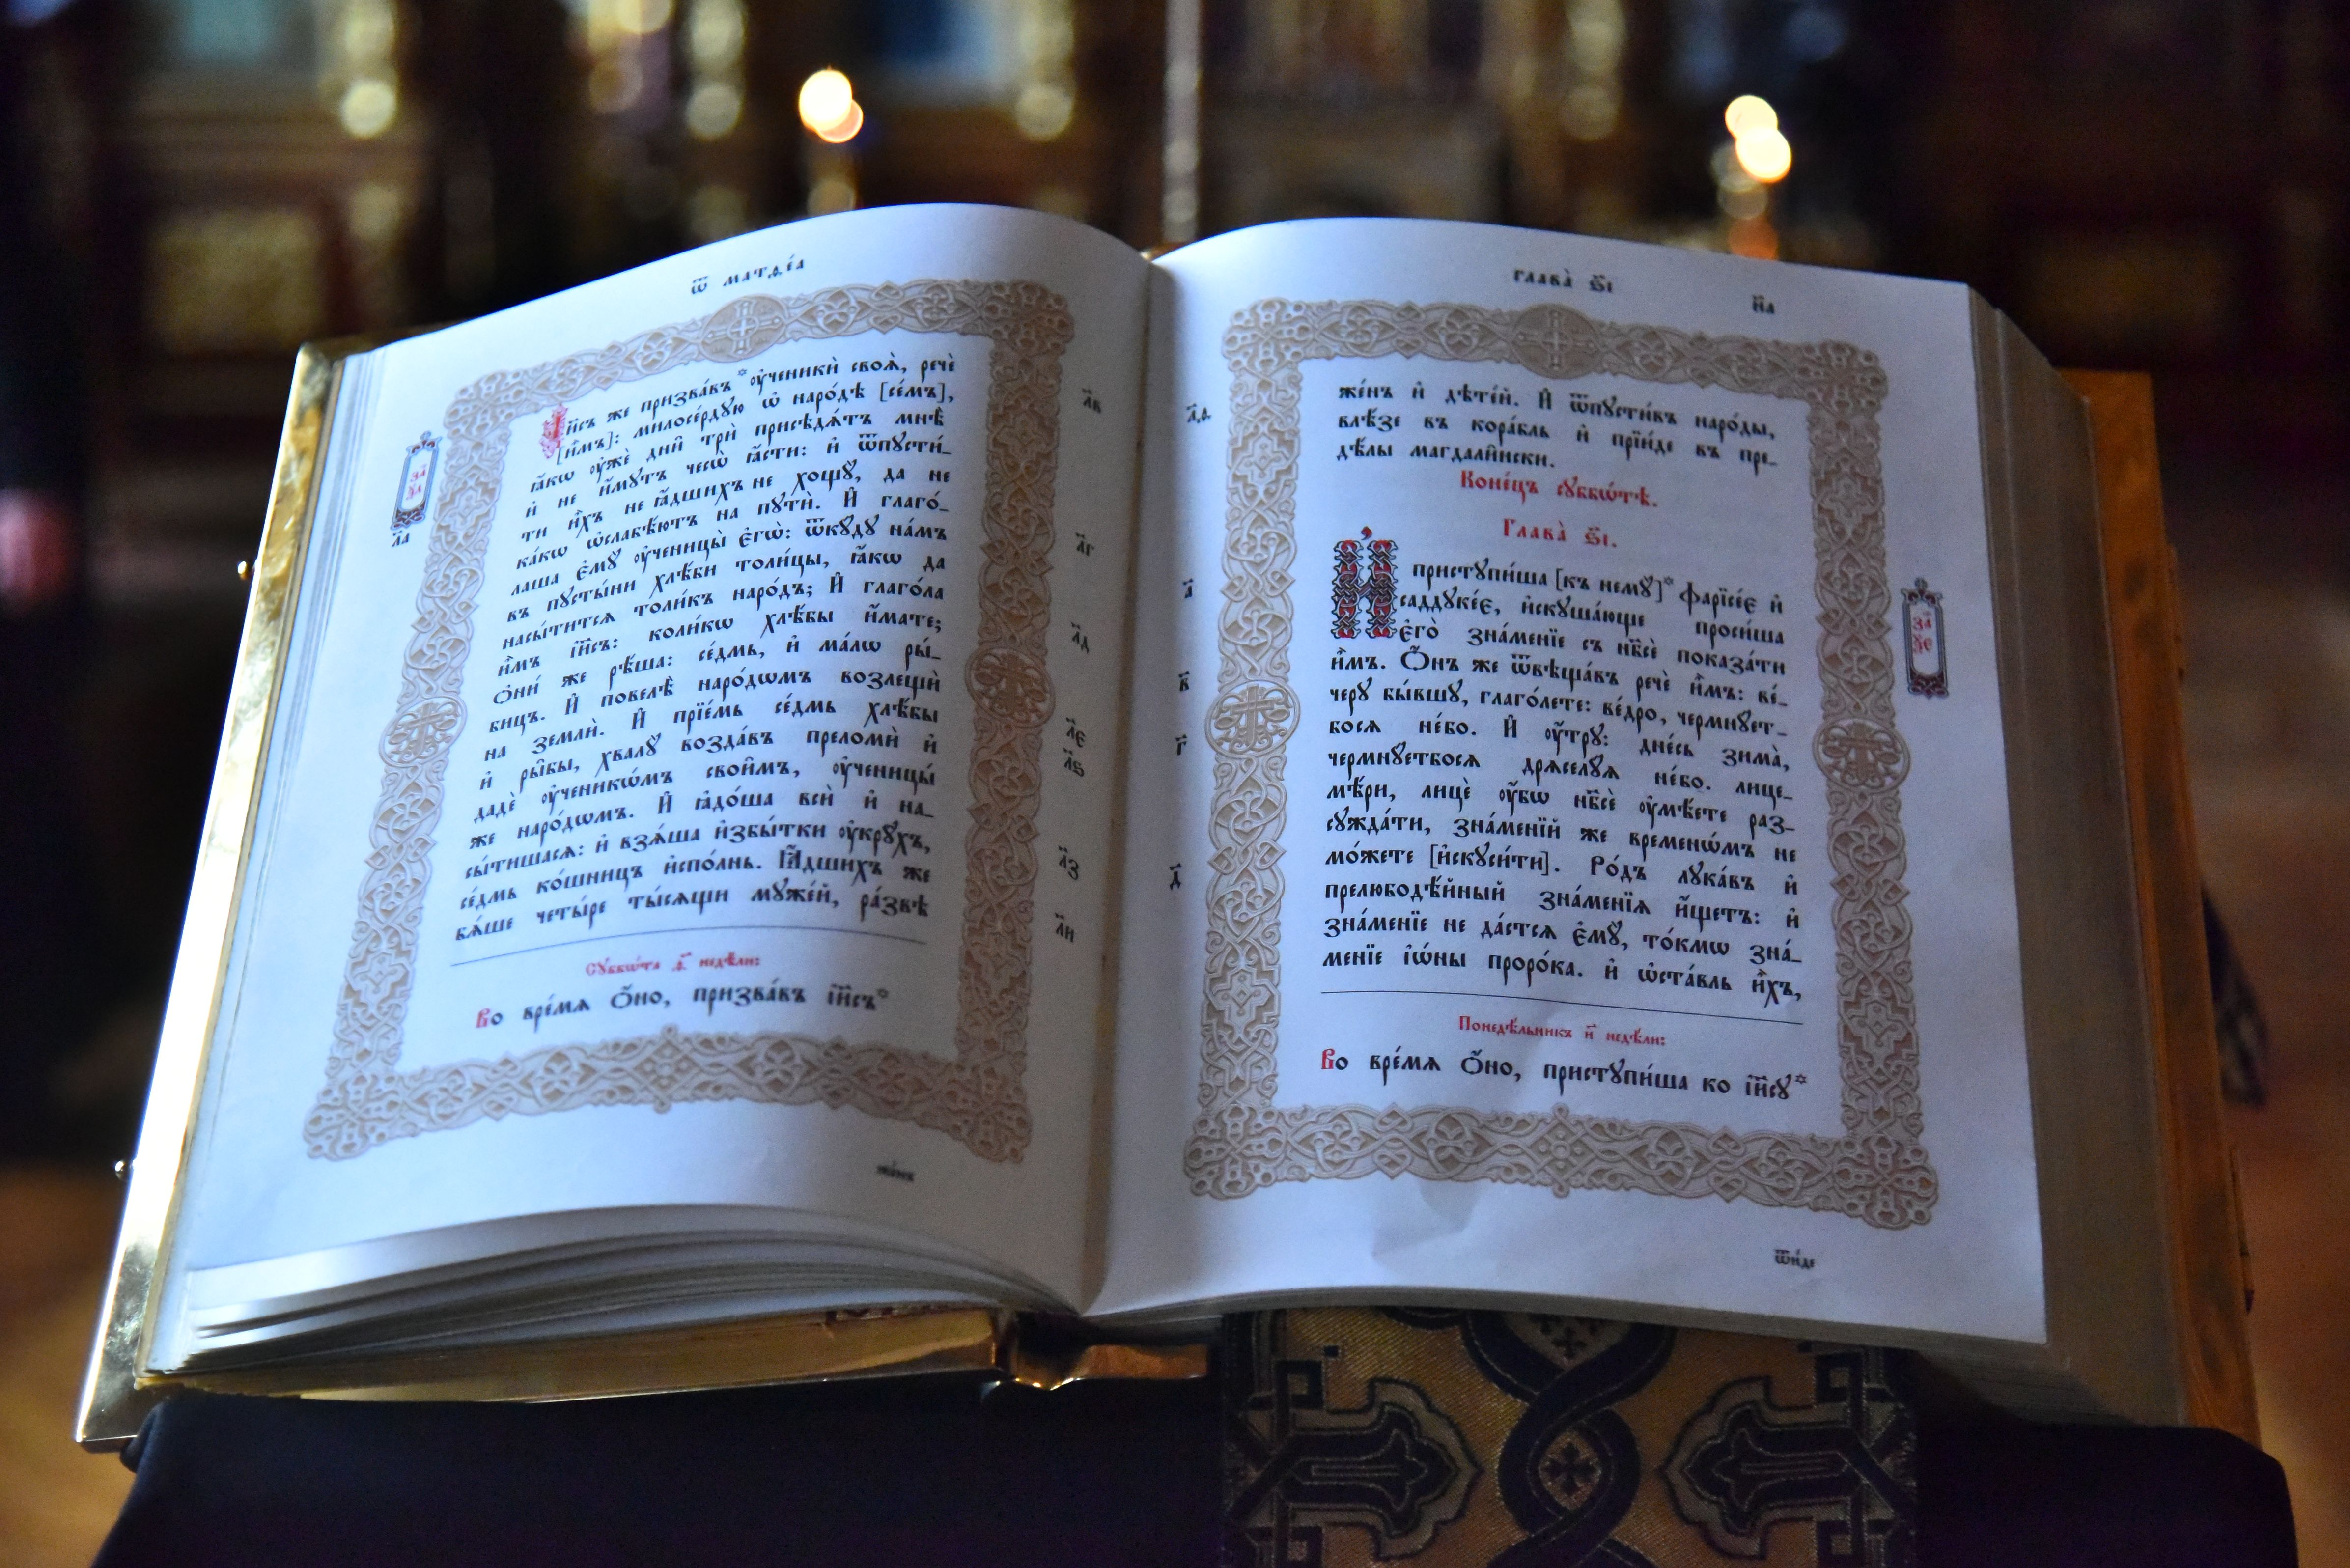 Ѿ матѳе́а
І҆и҃съ же призва́въ * ᲂу҆ченикѝ своѧ̑, речѐ
[и҆̀мъ]: милосе́рдꙋю ѡ҆ наро́дѣ [се́мъ],
ꙗ҆́кѡ ᲂу҆жѐ дни̑ трѝ присѣдѧ́тъ мнѣ̀
и҆ не и҆́мꙋтъ чесѡ̀ ꙗ҆́сти: и҆ ѿпꙋсти́_
ти и҆̀хъ не ꙗ҆́дшихъ не хощꙋ̀, да не
ка́кѡ ѡ҆слабѣ́ютъ на пꙋтѝ. И҆ глаго́_
лаша є҆мꙋ̀ ᲂу҆ченицы̀ є҆гѡ̀: ѿкꙋ́дꙋ на́мъ
въ пꙋсты́ни хлѣ́би толи́цы, ꙗ҆́кѡ да
насы́титсѧ толи́къ наро́дъ; И҆ глаго́ла
и҆̀мъ і҆и҃съ: коли́кѡ хлѣ́бы и҆́мате;
Ѻ҆ни́ же рѣ́ша: се́дмь, и҆ ма́лѡ ры́_
бицъ. И҆ повелѣ̀ наро́дѡмъ возлещѝ
на землѝ. И҆ прїе́мь се́дмь хлѣ́бы
и҆ ры̑бы, хвалꙋ̀ возда́въ преломѝ и҆
дадѐ ᲂу҆ченикѡ́мъ свои̑мъ, ᲂу҆ченицы́
же наро́дѡмъ. И҆ ꙗ҆до́ша всѝ и҆ на_
сы́тишасѧ: и҆ взѧ́ша и҆збы́тки ᲂу҆крꙋ̑хъ,
се́дмь ко́шницъ и҆спо́лнь. Ꙗ҆́дшихъ же
бѧ́ше четы́ре ты́сѧщи мꙋже́й, ра́звѣ
Сꙋббѡ́та д҃ недѣ́ли:
Во вре́мѧ ѻ҆́но, призва́въ і҆и҃съ*
же́нъ
за҃
л҃а
л҃в
л҃г
л҃д
л҃є
л҃ѕ
л҃з
л҃и
глава̀ ѕ҃і
н҃а
же́нъ и҆ дѣте́й. И҆ ѿпꙋсти́въ наро́ды,
влѣ́зе въ кора́бль и҆ прїи́де въ пре_
дѣ́лы магдали̑нски.
Коне́цъ сꙋббѡ́тѣ.
Глава̀ ѕ҃і.
И҆ пристꙋпи́ша [къ немꙋ̀]* фарїсе́є и҆
саддꙋке́є, и҆скꙋша́юще проси́ша
є҆го̀ зна́менїе съ нб҃сѐ показа́ти
и҆̀мъ. Ѻ҆́нъ же ѿвѣща́въ речѐ и҆̀мъ: ве́_
черꙋ бы́вшꙋ, глаго́лете: ве́дро, чермнꙋ́ет_
босѧ не́бо. И҆ ᲂу҆́трꙋ: дне́сь зима̀,
чермнꙋ́етбосѧ дрѧселꙋ́ѧ не́бо. лице_
мѣ́ри, лицѐ ᲂу҆́бѡ нб҃сѐ ᲂу҆мѣ́ете раз_
сꙋжда́ти, зна́менїй же временѡ́мъ не
мо́жете [и҆скꙋси́ти]. Ро́дъ лꙋка́въ и҆
прелюбодѣ́йный зна́менїѧ и҆́щетъ: и҆
зна́менїе не да́стсѧ є҆мꙋ̀, то́кмѡ зна́_
менїе і҆ѡ́ны проро́ка. и҆ ѡ҆ста́вль и҆̀хъ,
Понедѣ́льникъ и҃ недѣ́ли:
Во вре́мѧ ѻ҆́но, пристꙋпи́ша ко і҆и҃сꙋ*
ѿи́де
л҃ѳ
а҃
в҃
г҃
д҃
за҃